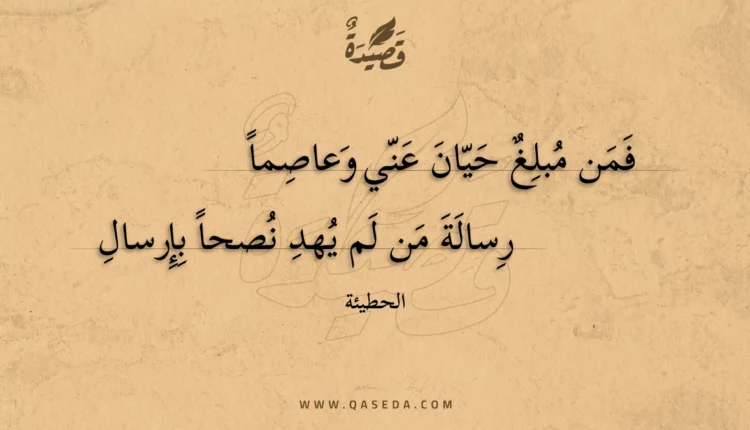 قَصِيدَةٌ
فَمَن مُبلِغٌ حَيّانَ عَنّي وَعاصِماً
رِسالَةَ مَن لَم يُهدِ نُصحاً بِإِرسالِ
الحطيئة
WWW.QASEDA.COM